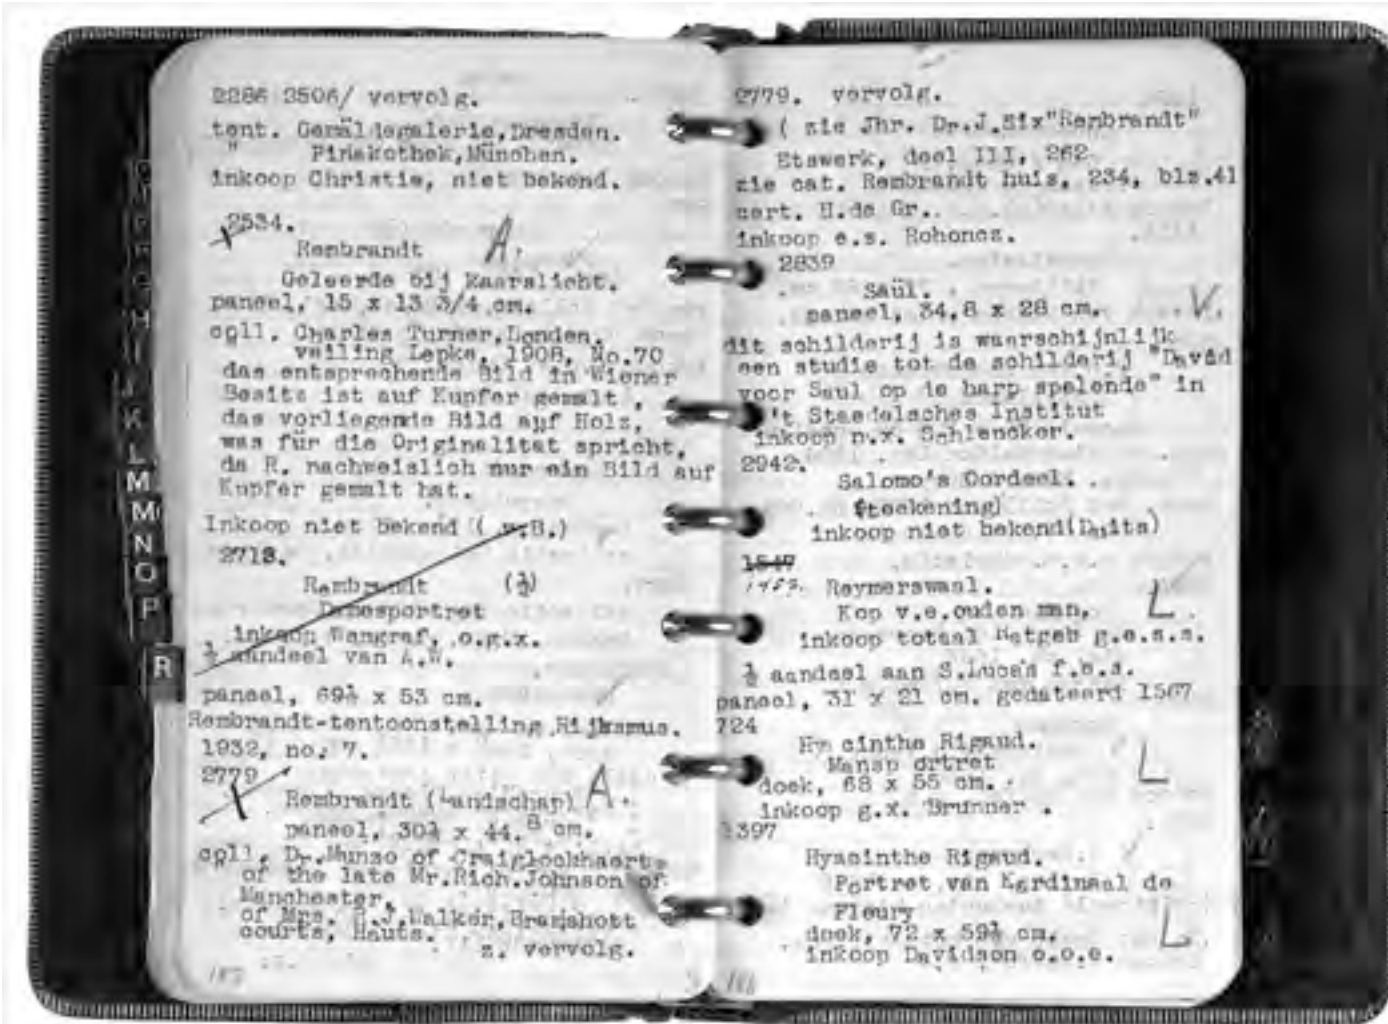 2286 2506/ vervolg.
tent. Gemäldegalerie, Dresden.
" Pinakothek, München.
inkoop Christie, niet bekend.
2534.
Rembrandt A.
Geleerde bij Kaarslicht.
paneel, 15 x 13 3/4 cm.
coll. Charles Turner, Londen.
veiling Lepke, 1908, No.70
das entsprechende Bild in Wiener
Besitz ist auf Kupfer gemalt,
das vorliegende Bild auf Holz,
was für die Originalitat spricht,
da R. nachweislich nur ein Bild auf
Kupfer gemalt hat.
Inkoop niet bekend ( v.B.)
2718.
Rembrandt (½)
Damesportret
inkoop Wengraf, o.g.x.
½ aandeel van A.W.
paneel, 69½ x 53 cm.
Rembrandt-tentoonstelling Rijksmus.
1932, no. 7.
2779
Rembrandt (Landschap) A.
paneel, 30½ x 44.8 cm.
coll. Dr. Munso of Craiglockhaert
of the late Mr.Rich.Johnson of
Manchester.
of Mrs. J.Walker, Bramshott
courts, Hauts.
z. vervolg.
187
2779. vervolg.
( zie Jhr. Dr.J.Six"Rembrandt"
Etswerk, deel III, 262
zie cat. Rembrandt huis, 234, blz.41
cert. H.de Gr..
inkoop e.s. Rohoncz.
2839
Saül.
paneel, 34,8 x 28 cm. V.
dit schilderij is waarschijnlijk
een studie tot de schilderij "David
voor Saul op de harp spelende" in
't Staedelsches Institut
inkoop n.x. Sahlencker.
2942.
Salomo's Oordeel.
(teekening)
inkoop niet bekend(Duits)
1547
Reymerswaal. L
Kop v.e.ouden man.
inkoop totaal Matgeb g.e.s.s.
½ aandeel aan S.Lucas f.b.s.
paneel, 31 x 21 cm. gedateerd 1567
724
Hy cinthe Rigaud.
Mansp ortret L
doek, 68 x 55 cm.
inkoop g.x. Brunner .
1397
Hyacinthe Rigaud.
Portret van Kardinaal de
Fleury
doek, 72 x 59½ cm. L
inkoop Davidson o.o.e.
188
K
L
M
M
N
O
P
R